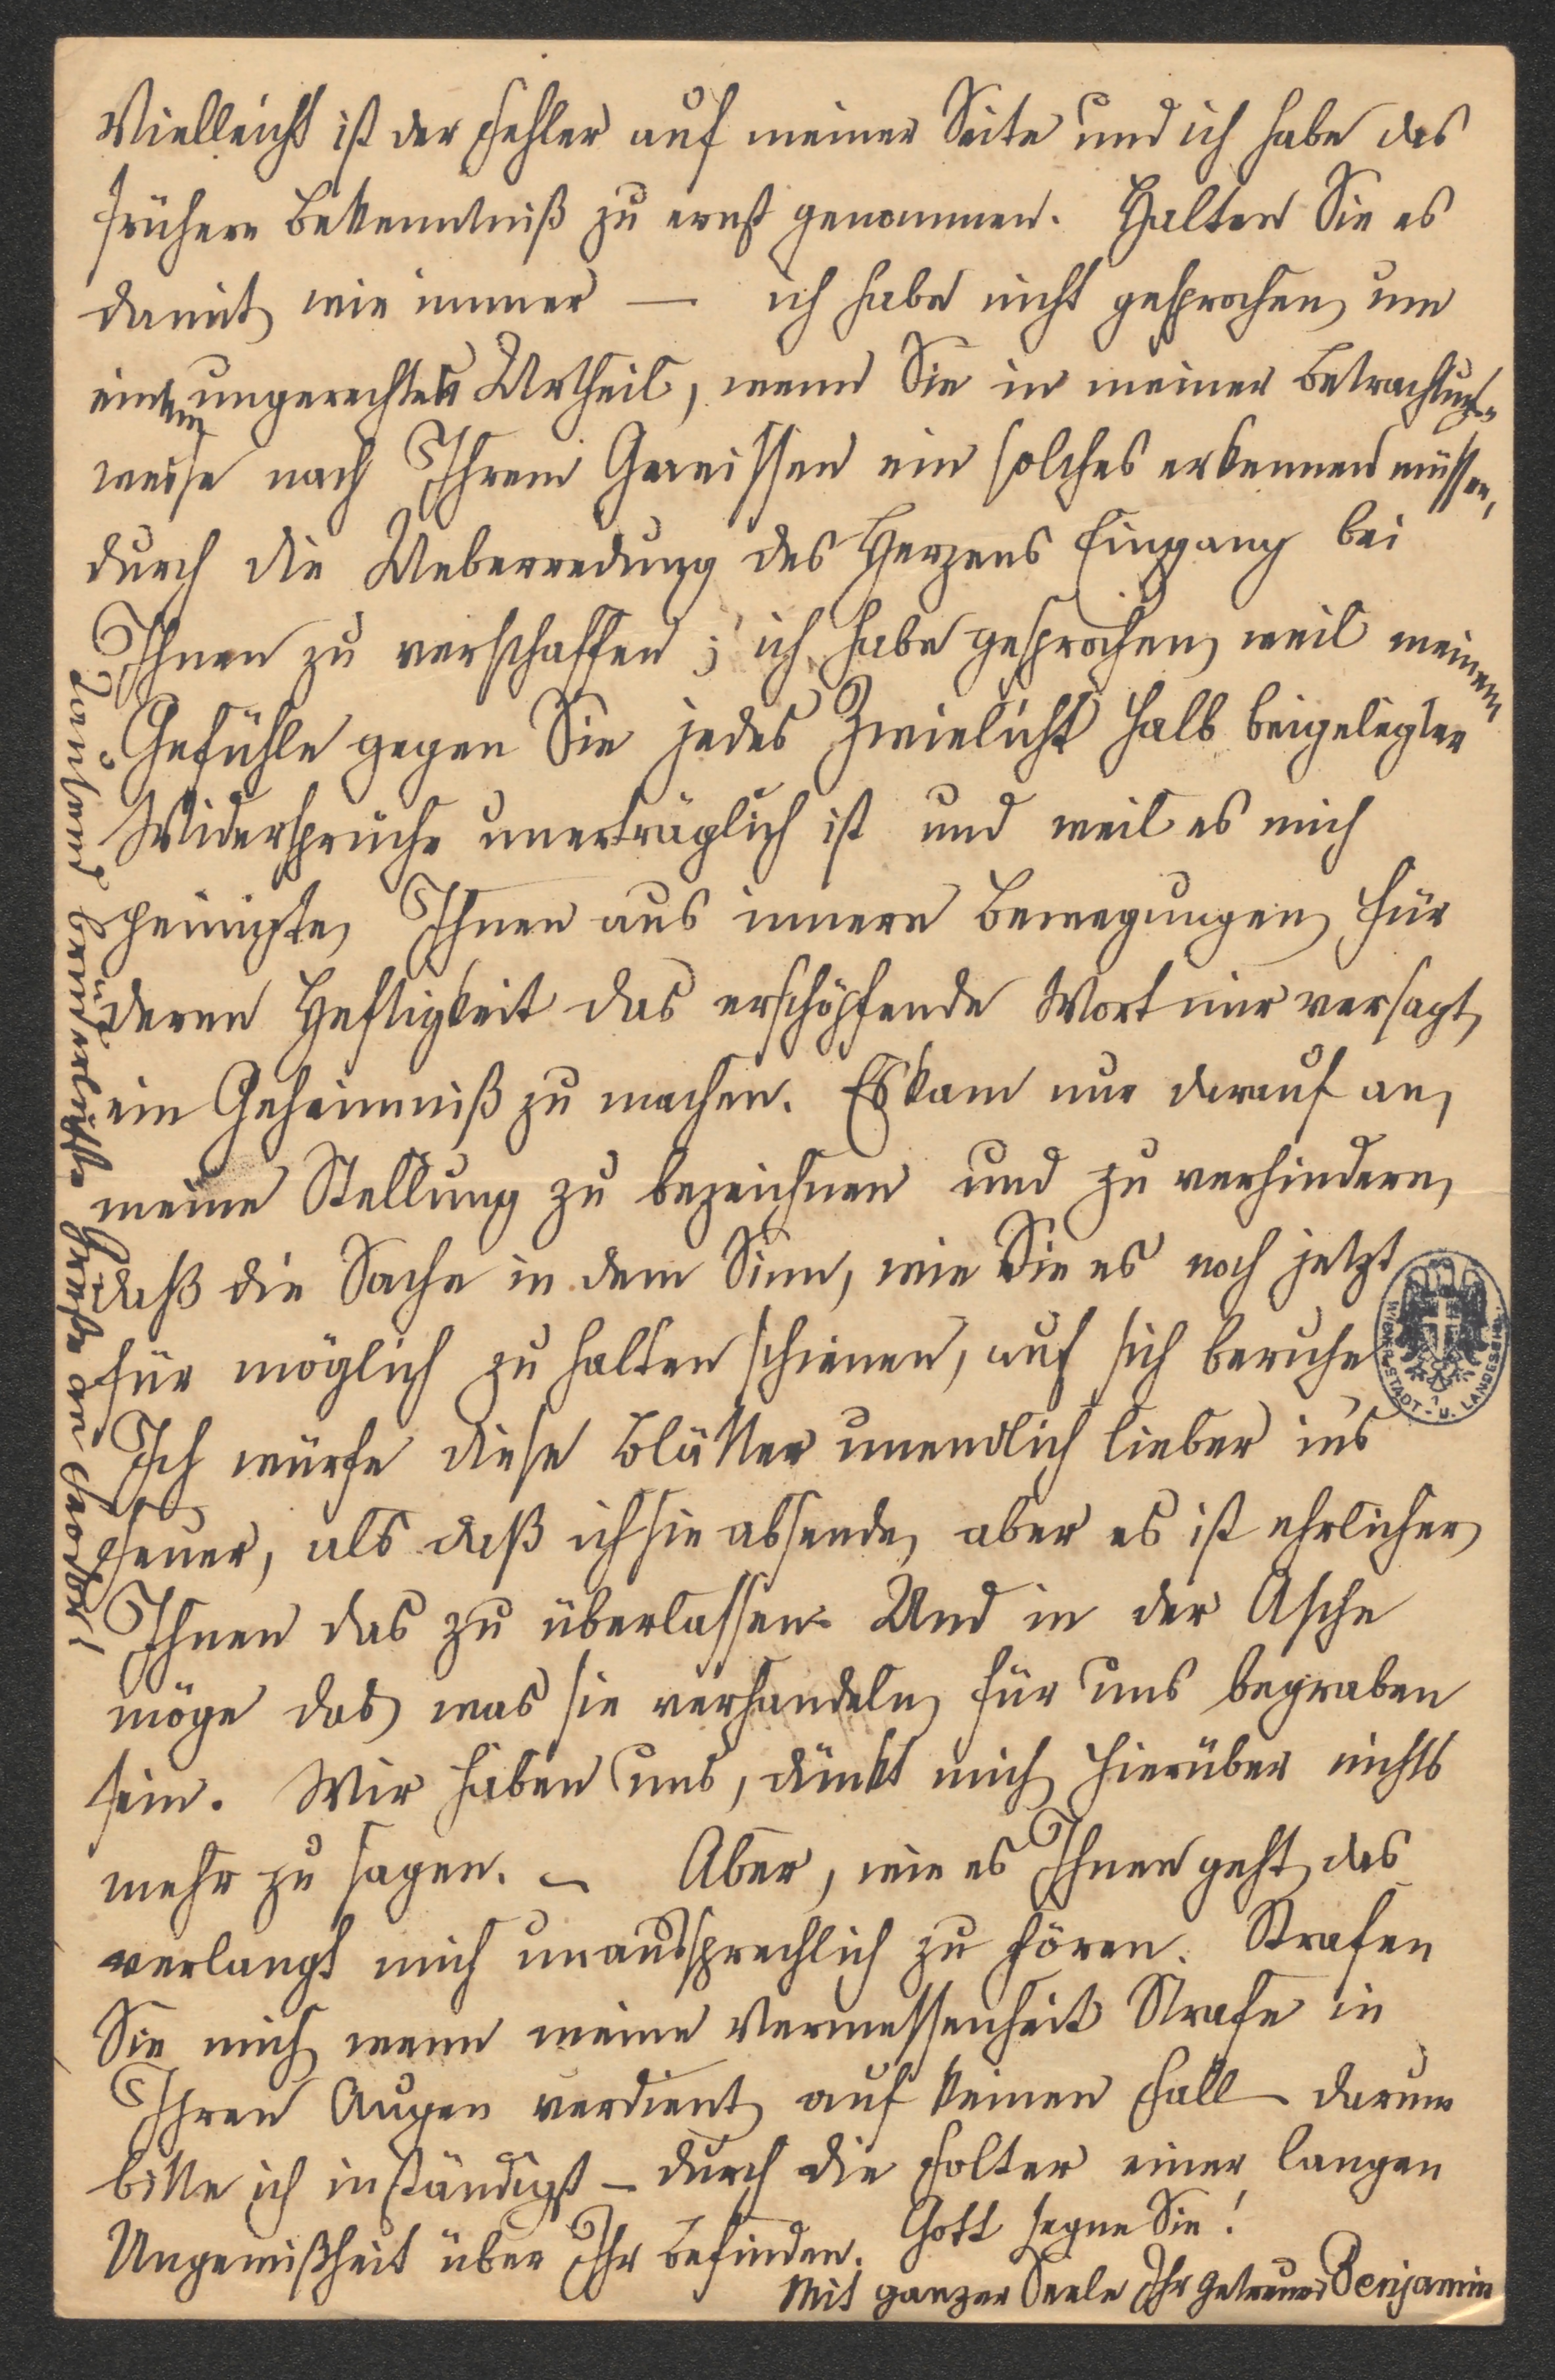 Vielleicht ist der Fehler auf meiner Seite und ich habe das
frühere Bekenntniß zu ernst genommen. Halten Sie es
damit, wie immer — ich habe nicht gesprochen, um
einem ungerechten Urtheil, wenn Sie in meiner Betrachtungs-
weise nach Ihrem Gewissen ein solches erkennen müssen,
durch die Ueberredung des Herzens Eingang bei
Ihnen zu verschaffen; ich habe gesprochen, weil meinem
Gefühle gegen Sie jedes Zwielicht halb beigelegter
Widersprüche unerträglich ist und weil es mich
peinigte, Ihnen aus innern Bewegungen, für
deren Heftigkeit das erschöpfende Wort mir versagt,
ein Geheimniß zu machen. Es kam nur darauf an,
meine Stellung zu bezeichnen und zu verhindern,
daß die Sache in dem Sinn, wie Sie es noch jetzt
für möglich zu halten schienen, auf sich beruhe
Ich würfe diese Blätter unendlich lieber in's
Feuer, als daß ich sie absende, aber es ist ehrlicher,
Ihnen das zu überlassen. Und in der Asche
möge das, was sie verhandeln, für uns begraben
sein. Wir haben uns, dünkt mich, hierüber nichts
mehr zu sagen. – Aber, wie es Ihnen geht, das
verlangt mich unaussprechlich zu hören. Strafen
Sie mich, wenn meine Vermessenheit Strafe in
Ihren Augen verdient, auf keinen Fall – darum
bitte ich inständigst – durch die Folter einer langen
Ungewißheit über Ihr Befinden. Gott segne Sie!
Mit ganzer Seele Ihr getreuer Benjamin
Tausend brüderlichste Grüße an
WIENER STADT- U. LANDESBIBL.